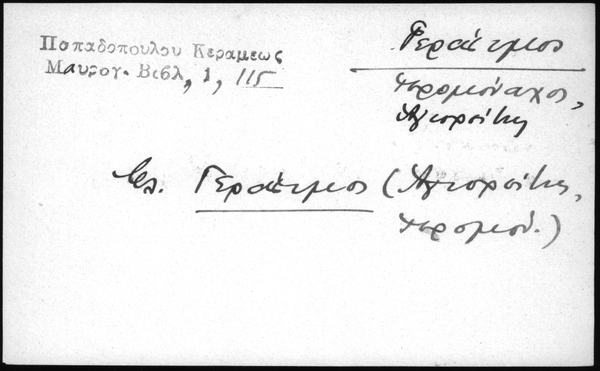 Παπαδοπουλου Κεραμεως
Μαυρογ. Βιβλ, 1, 115
Γεράσιμος
ιερομόναχος,
Αγιορείτης
Βλ. Γεράσιμος (Αγιορείτης,
ιερομον.)